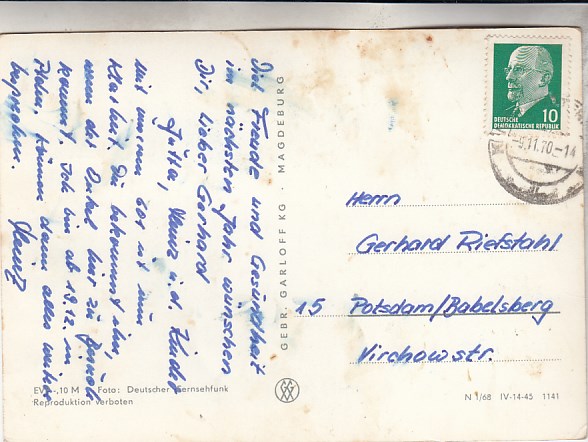 Viel Freude und Gesundheit
im nächsten Jahr wünschen
Dir, lieber Gerhard
Jutta, Heinz u. d. Kinder
Mit warum ist nun
Klarheit. Du bekommst ihn,
wenn der Onkel hier zu Besuch
kommt. Ich bin ab 18.12. in
können dann alles weitere
besprechen.
Heinz
GEBR. GARLOFF KG · MAGDEBURG
10
DEUTSCHE
DEMOKRATISCHE REPUBLIK
-9.11.70.-14
Herrn
Gerhard Riefstahl
15 Potsdam/Babelsberg
Virchowstr.
EVP -,10 M Foto: Deutscher Fernsehfunk
Reproduktion verboten
N 1/68 IV-14-45 1141